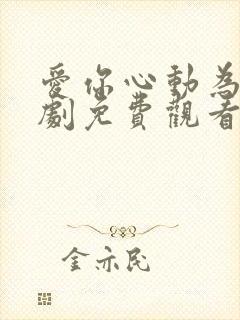 愛你心動為
劇免費觀看
金亦民